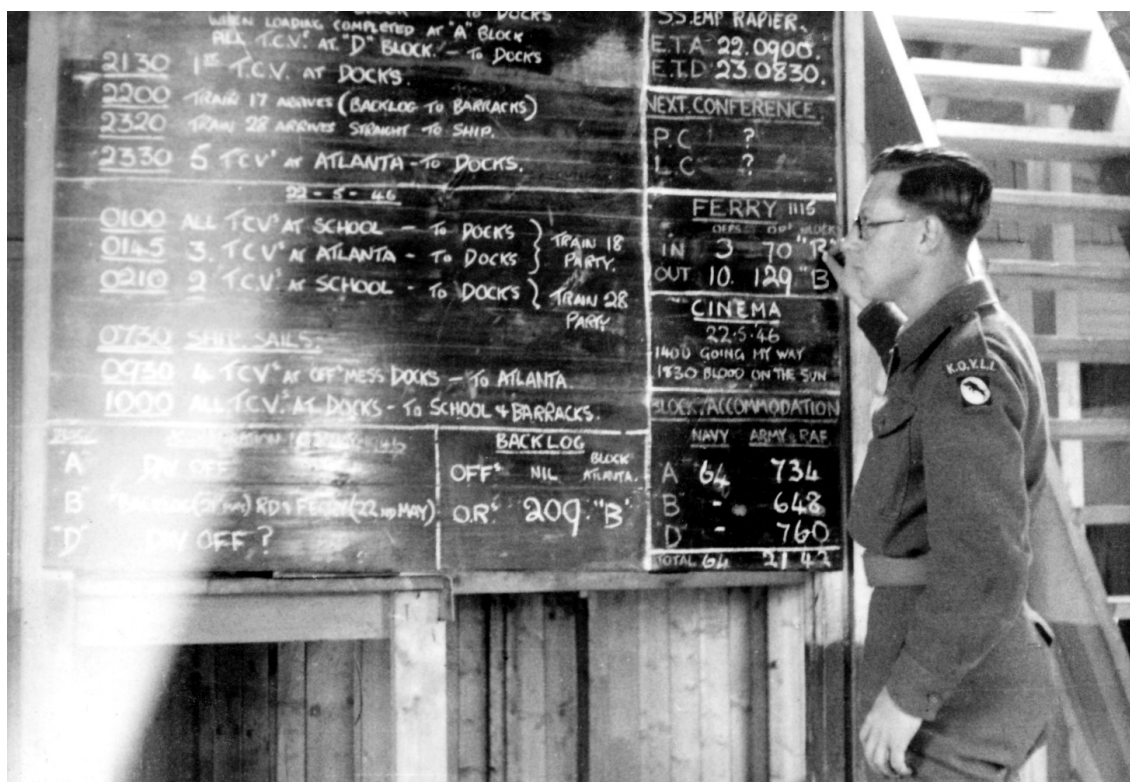 TO DOCKS.
WHEN LOADING COMPLETED AT "A" BLOCK
ALL T.C.V.S AT "D" BLOCK. – TO DOCKS
2130 1ST T.C.V. AT DOCKS.
2200 TRAIN 17 ARRIVES (BACKLOG TO BARRACKS)
2320 TRAIN 28 ARRIVES STRAIGHT TO SHIP.
2330 5 T.C.VS AT ATLANTA – TO DOCKS.
22 - 5 - 46
0100 ALL T.C.VS AT SCHOOL – TO DOCKS
0145 3. T.C.VS AT ATLANTA – TO DOCKS
TRAIN 18
PARTY.
0210 2 T.C.VS AT SCHOOL – TO DOCKS
TRAIN 28
PARTY
0730 SHIP SAILS.
0930 4 T.C.VS AT OFFS MESS DOCKS – TO ATLANTA
1000 ALL T.C.V.S AT DOCKS – TO SCHOOL & BARRACKS.
A DAY OFF
"B" BACKLOG RDS FERRY (22ND MAY)
"D" DAY OFF ?
BACKLOG
BLOCK
OFFS NIL ATLANTA.
O.RS 209. "B"
S.S. EMP RAPIER.
E.T.A 22.0900.
E.T.D 23.0830.
NEXT CONFERENCE.
P.C ?
L.C ?
FERRY 1115
OFFS ORS BLOCK
IN 3 70 "B"
OUT 10. 129. "B"
CINEMA
22.5.46
1400 GOING MY WAY
1830 BLOOD ON THE SUN
BLOCK ACCOMMODATION
NAVY ARMY & RAF
A 64 734
"B" - 648
"D" - 760
TOTAL 64 2142
K.O.Y.L.I.